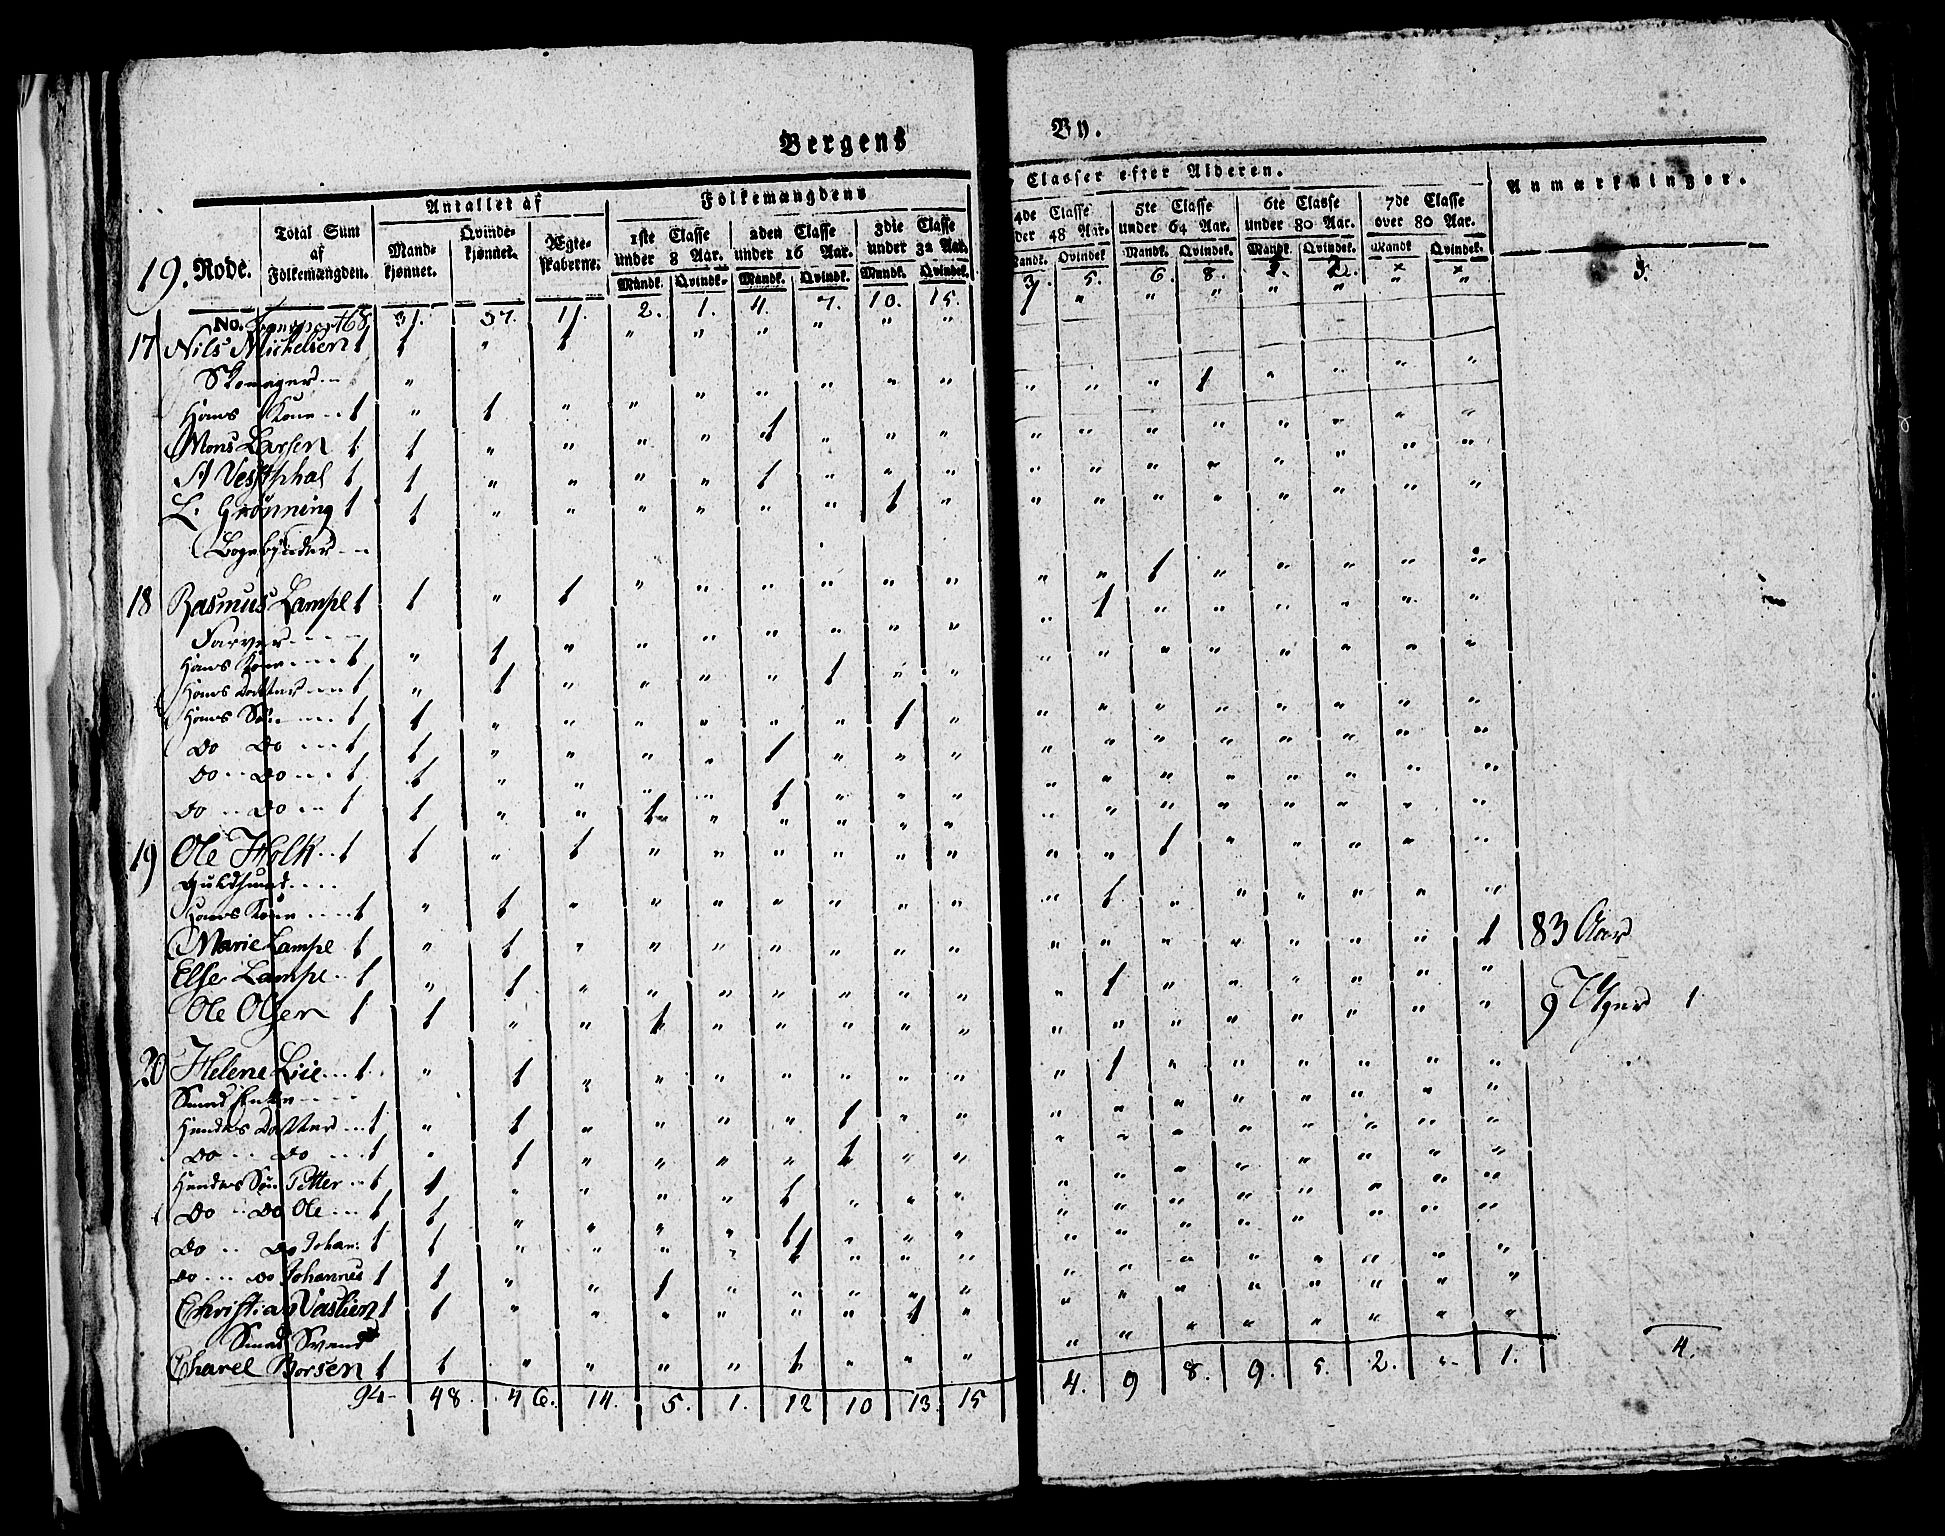 Bergens By.
19. Rode. Total Sum af Folkemængden. Antallet af Mandkjønnet. Qvindekjønnet. Ægteskaberne. Folkemængdens Classer efter Alderen. Anmærkninger.
1ste Classe under 8 Aar. 2den Classe under 16 Aar. 3die Classe under 32 Aar. 4de Classe under 48 Aar. 5te Classe under 64 Aar. 6te Classe under 80 Aar. 7de Classe over 80 Aar.
Mandk. Qvindek. Mandk. Qvindek. Mandk. Qvindek. Mandk. Qvindek. Mandk. Qvindek. Mandk. Qvindek. Mandk. Qvindek.
No. Transport 68 31. 37. 11. 2. 1. 4. 7. 10. 15. 3 5. 6. 8. 2. " " 3.
17 Nils Michelsen 1 1 " 1 " " " " " " 1 " " " " " " "
Skomager
Hans Kone 1 " 1 " " " " " " " " " " 1 " " " "
Mons Larsen 1 1 " " " " 1 " " " " " " " " " " "
A Vestphal 1 1 " " " " 1 " " " " " " " " " " "
L. Grønning 1 1 " " " " " " 1 " " " " " " " " "
Bogebinder
18 Rasmus Lampe 1 1 " 1 " " " " " " " " 1 " " " " "
Farver
Hans Kone 1 " 1 " " " " " " " " 1 " " " " " "
Hans Datter 1 " 1 " " " " 1 " " " " " " " " " "
Hans Søn 1 1 " " " " " " 1 " " " " " " " " "
Do Do 1 1 " " " " 1 " " " " " " " " " " "
Do Do 1 1 " " " " 1 " " " " " " " " " " "
Do Do 1 1 " " 1 " " " " " " " " " " " " "
19 Ole Holk 1 1 " 1 " " " " " " " " 1 " " " " "
Guldsmed
Hans Kone 1 " 1 " " " " " " " " 1 " " " " " "
Marie Lampe 1 " 1 " " " " " " " " " " " " " " 1 83 Aar
Else Lampe 1 " 1 " " " " " " " " 1 " " " " " "
Ole Olsen 1 1 " " 1 " " " " " " " " " " " " " 9 Uger 1
20 Helene Lie 1 " 1 " " " " " " " " 1 " " " " " "
Smed Enke
Hendes Datter 1 " 1 " " " " 1 " " " " " " " " " "
Do Do 1 " 1 " " " " 1 " " " " " " " " " "
Hendes Søn Petter 1 1 " " " " 1 " " " " " " " " " " "
Do Do Ole 1 1 " " " " 1 " " " " " " " " " " "
Do Do Johan: 1 1 " " " " 1 " " " " " " " " " " "
Do Do Johannes 1 1 " " 1 " " " " " " " " " " " " "
Christian 1 1 " " " " " " 1 " " " " " " " " "
Smed Svend
Charel Borsen 1 1 " " " " 1 " " " " " " " " " " "
94 48. 46. 14. 5. 1. 12 10 13. 15 4. 9 8. 9. 5. 2. " 1. 4.